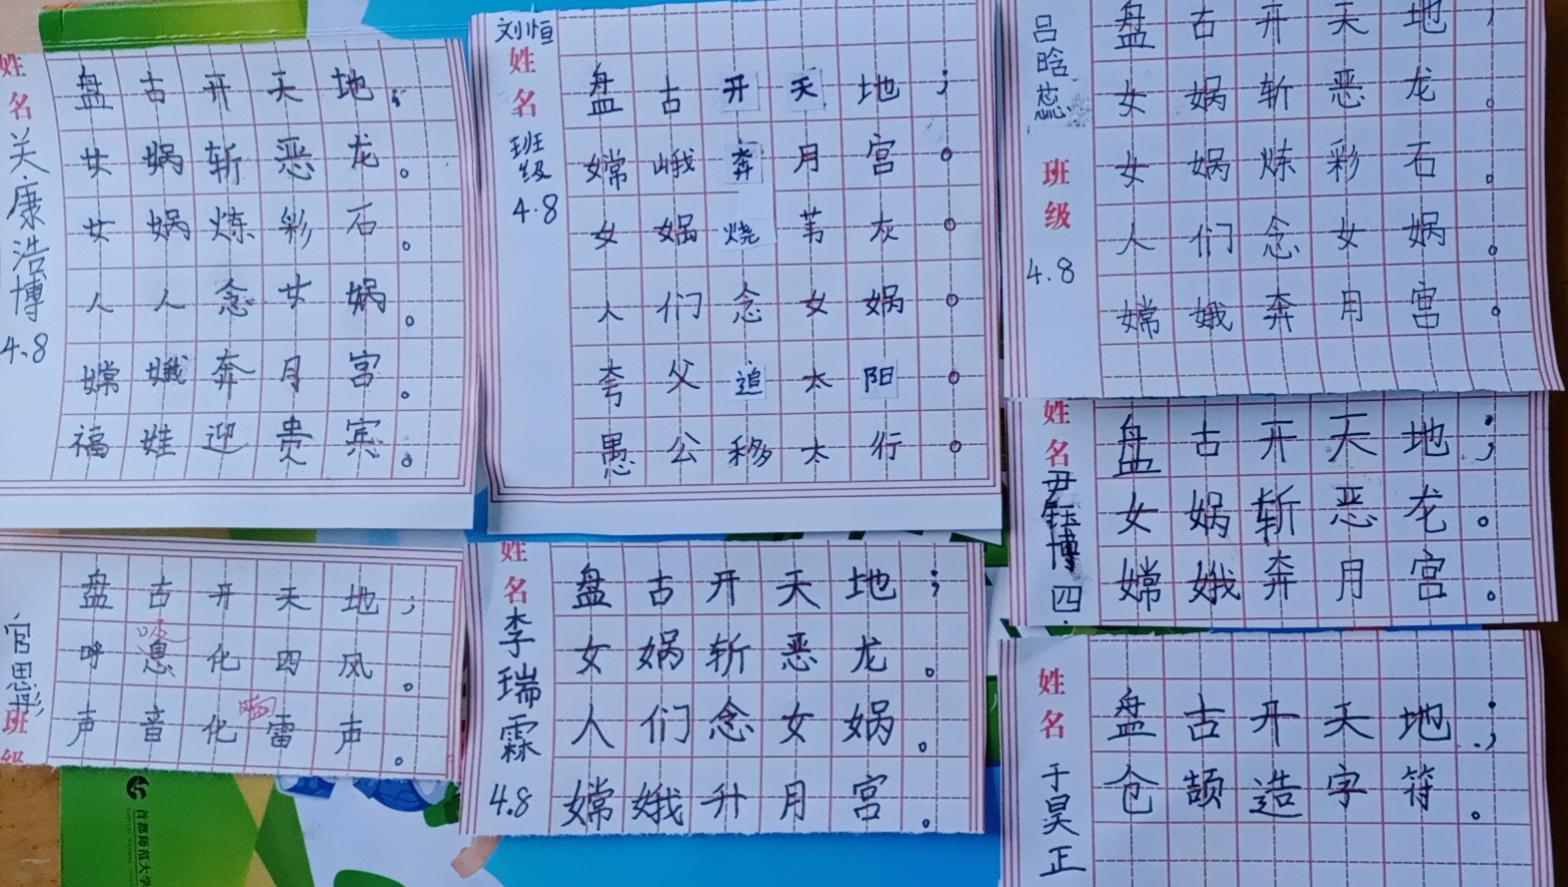 姓名
关康浩博
4.8
盘古开天地；
女娲斩恶龙。
女娲炼彩石。
人人念女娲。
嫦娥奔月宫。
福娃迎贵宾。
刘恒
姓名
班级
4.8
盘古开天地；
嫦峨奔月宫。
女娲烧苇灰。
人们念女娲。
夸父追太阳。
愚公移太行。
吕晗蕊
班级
4.8
盘古开天地；
女娲斩恶龙。
女娲炼彩石。
人们念女娲。
嫦娥奔月宫。
姓名
尹钰博
四.
盘古开天地；
女娲斩恶龙。
嫦娥奔月宫。
官思彤
班级
盘古开天地；
呼息化四风。
吸
声音化雷声。
雷
姓名
李瑞霖
4.8
盘古开天地；
女娲斩恶龙。
人们念女娲。
嫦娥升月宫。
姓名
于昊正
盘古开天地；
仓颉造字符。
首都师范大学